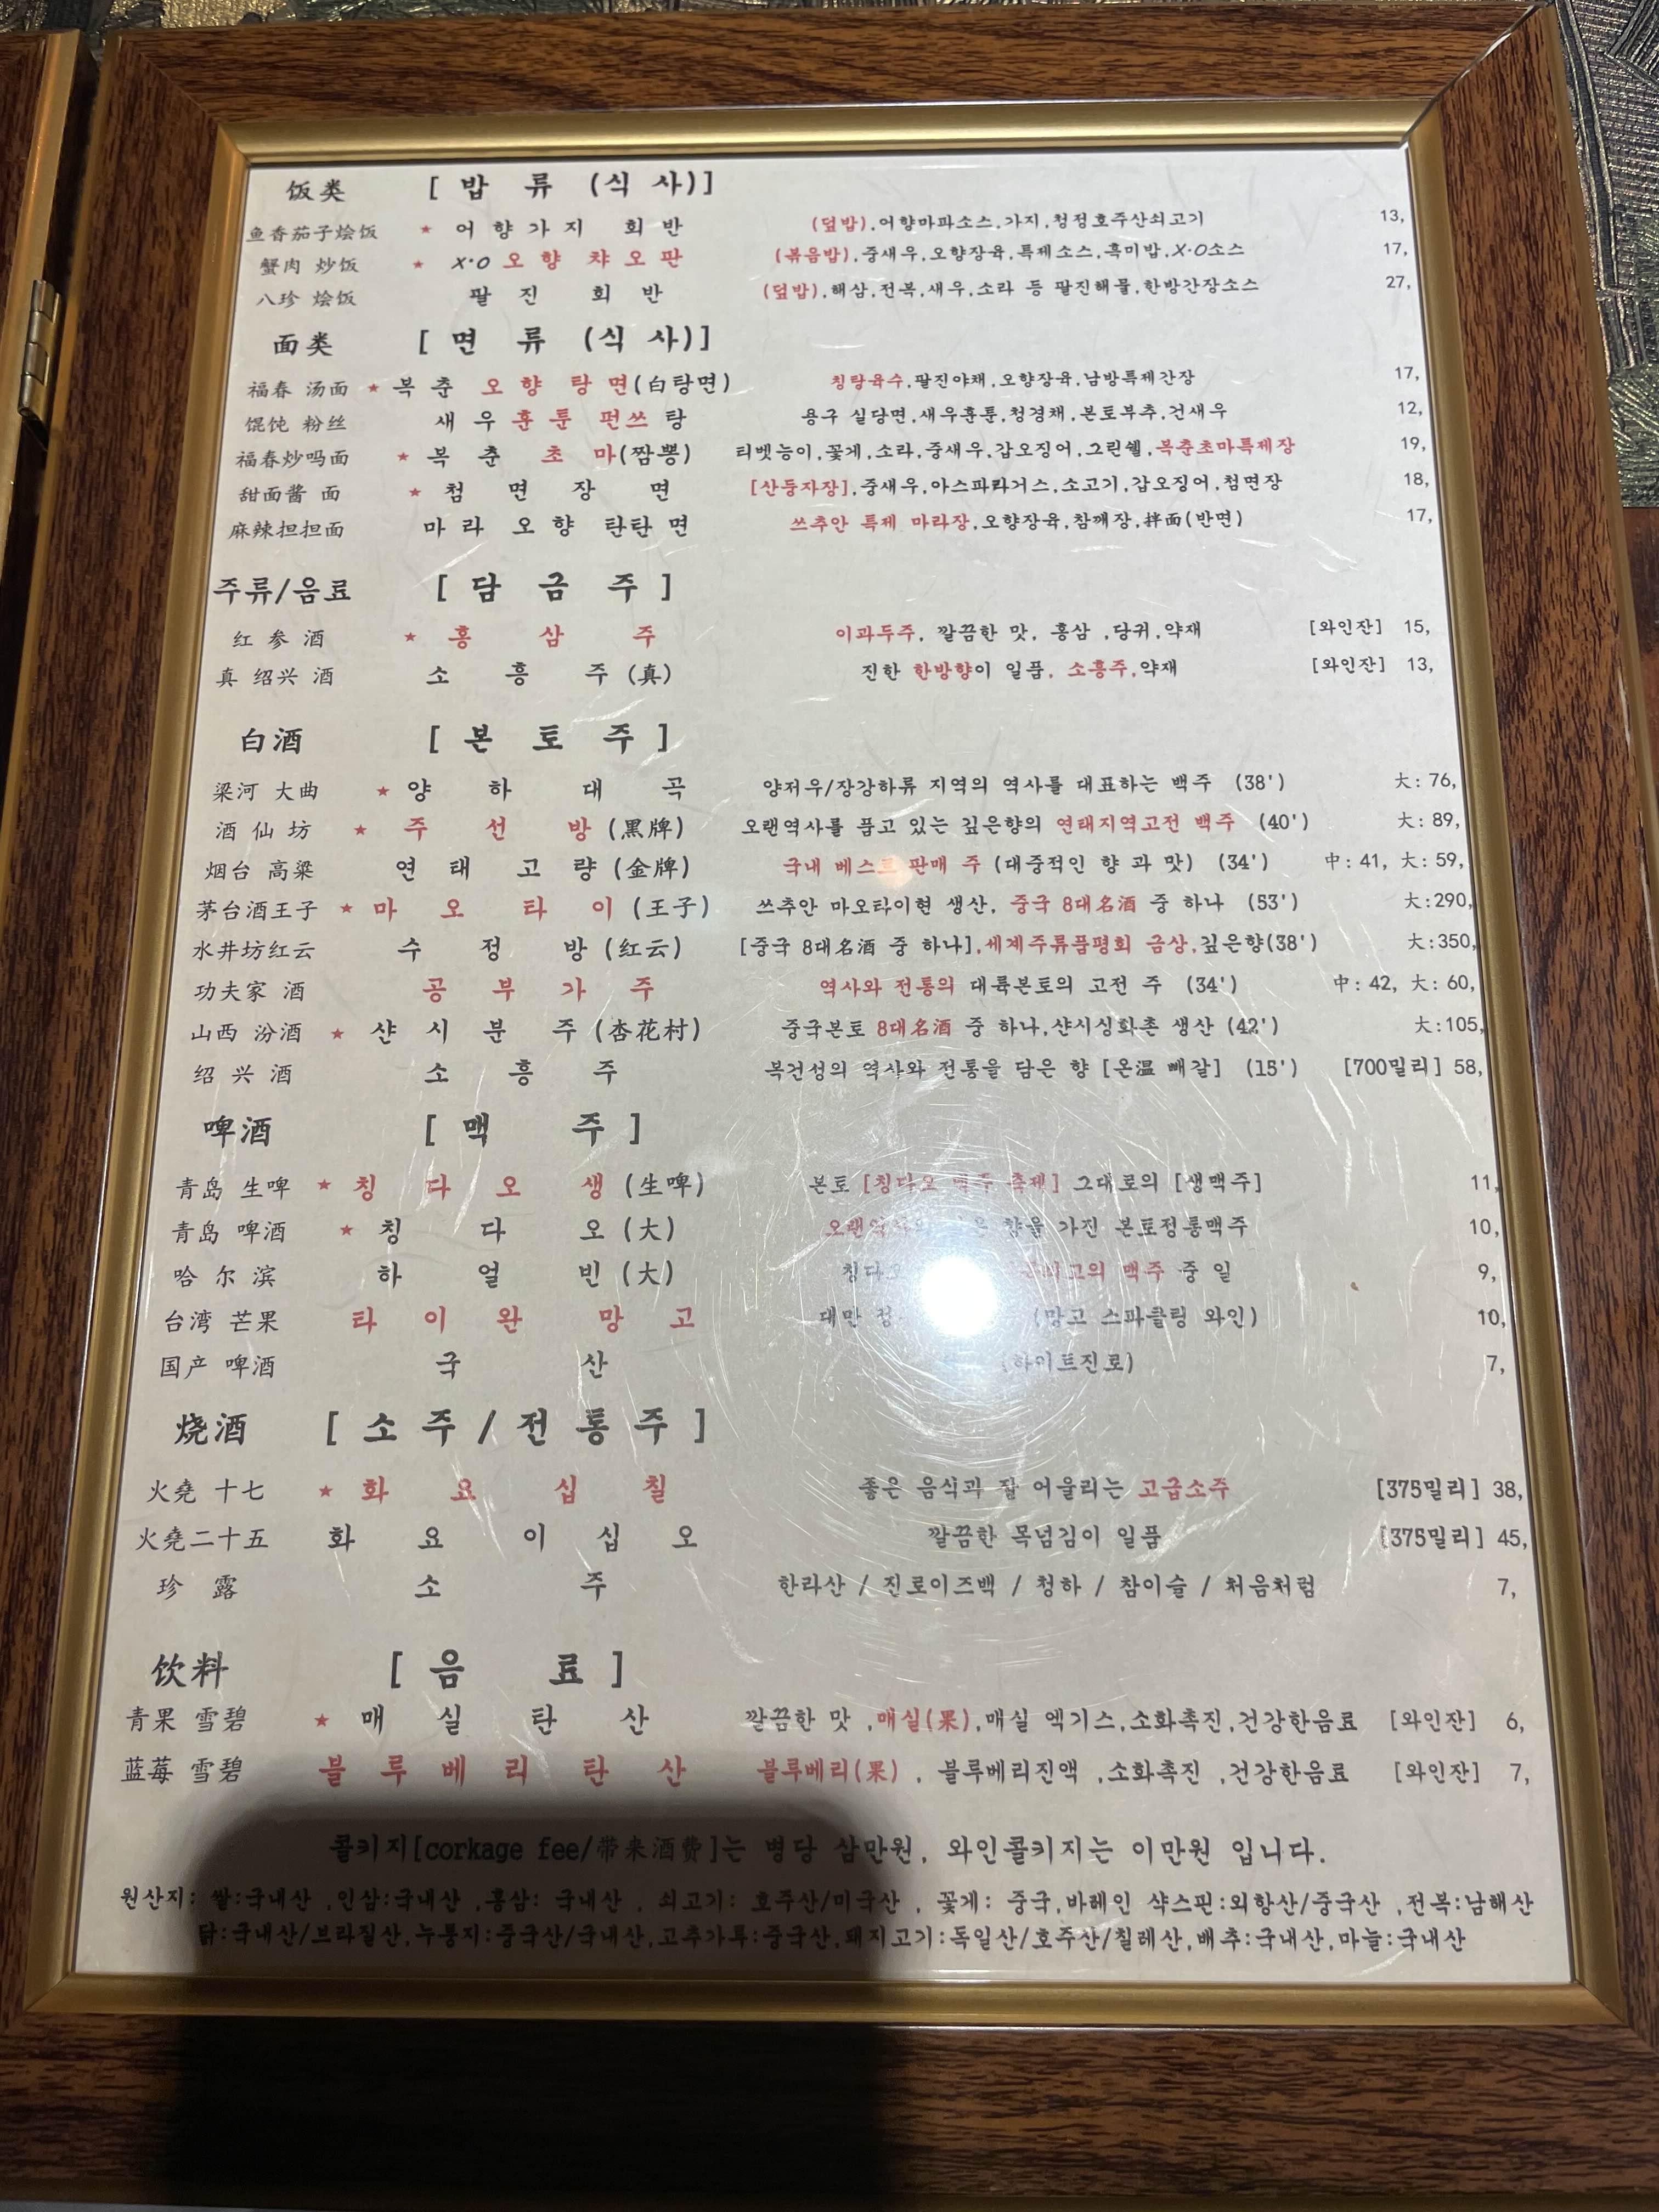 饭类 [ 밥 류 (식 사)]
鱼香茄子烩饭 ★ 어 향 가 지 회 반 (덮밥),어향마파소스,가지,청정호주산쇠고기 13,
蟹肉 炒饭 ★ X·O 오 향 챠 오 판 (볶음밥),중새우,오향장육,특제소스,흑미밥,X·O소스 17,
八珍 烩饭 팔 진 회 반 (덮밥),해삼,전복,새우,소라 등 팔진해물,한방간장소스 27,
面类 [ 면 류 (식 사)]
福春 汤面 ★ 복 춘 오 향 탕 면(白탕면) 칭탕육수,팔진야채,오향장육,남방특제간장 17,
馄饨 粉丝 새 우 훈 툰 펀쓰 탕 용구 실당면,새우훈툰,청경채,본토부추,건새우 12,
福春炒吗面 ★ 복 춘 초 마(짬뽕) 티벳능이,꽃게,소라,중새우,갑오징어,그린쉘,복춘초마특제장 19,
甜面酱 面 ★ 첨 면 장 면 [산둥자장],중새우,아스파라거스,소고기,갑오징어,첨면장 18,
麻辣担担面 마 라 오 향 탄탄 면 쓰추안 특제 마라장,오향장육,참깨장,拌面(반면) 17,
주류/음료 [ 담 금 주 ]
红 参 酒 ★ 홍 삼 주 이과두주, 깔끔한 맛, 홍삼 ,당귀,약재 [와인잔] 15,
真 绍兴 酒 소 흥 주 (真) 진한 한방향이 일품, 소흥주,약재 [와인잔] 13,
白酒 [ 본 토 주 ]
梁河 大曲 ★ 양 하 대 곡 양저우/장강하류 지역의 역사를 대표하는 백주 (38') 大: 76,
酒 仙 坊 ★ 주 선 방 (黑牌) 오랜역사를 품고 있는 깊은향의 연태지역고전 백주 (40') 大: 89,
烟台 高粱 연 태 고 량 (金牌) 국내 베스트 판매 주 (대중적인 향 과 맛) (34') 中: 41, 大: 59,
茅台酒王子 ★ 마 오 타 이 (王子) 쓰추안 마오타이현 생산, 중국 8대名酒 중 하나 (53') 大:290,
水井坊红云 수 정 방 (红云) [중국 8대名酒 중 하나],세계주류품평회 금상,깊은향(38') 大:350,
功夫家 酒 공 부 가 주 역사와 전통의 대륙본토의 고전 주 (34') 中: 42, 大: 60,
山西 汾酒 ★ 샨 시 분 주 (杏花村) 중국본토 8대名酒 중 하나,샨시싱화촌 생산 (42') 大:105,
绍 兴 酒 소 흥 주 복건성의 역사와 전통을 담은 향 [온温 빼갈] (15') [700밀리] 58,
啤酒 [ 맥 주 ]
青岛 生啤 ★ 칭 다 오 생 (生啤) 본토 [칭다오 맥주 축제] 그대로의 [생맥주] 11,
青岛 啤酒 ★ 칭 다 오 (大) 향을 가진 본토정통맥주 10,
哈 尔 滨 하 얼 빈 (大) 맥주 중 일 9,
台湾 芒果 타 이 완 망 고 대만 (망고 스파클링 와인) 10,
国产 啤酒 국 산 (하이트진로) 7,
烧酒 [ 소 주 / 전 통 주 ]
火堯 十七 ★ 화 요 십 칠 좋은 음식과 잘 어울리는 고급소주 [375밀리] 38,
火堯二十五 화 요 이 십 오 깔끔한 목넘김이 일품 [375밀리] 45,
珍 露 소 주 한라산 / 진로이즈백 / 청하 / 참이슬 / 처음처럼 7,
饮料 [ 음 료 ]
青果 雪碧 ★ 매 실 탄 산 깔끔한 맛 ,매실(果),매실 엑기스,소화촉진,건강한음료 [와인잔] 6,
蓝莓 雪碧 블 루 베 리 탄 산 블루베리(果) , 블루베리진액 ,소화촉진 ,건강한음료 [와인잔] 7,
콜키지[corkage fee/带来酒费]는 병당 삼만원, 와인콜키지는 이만원 입니다.
원산지: 쌀:국내산 ,인삼:국내산 ,홍삼: 국내산 , 쇠고기: 호주산/미국산 , 꽃게: 중국,바레인 샥스핀:외항산/중국산 ,전복:남해산
닭:국내산/브라질산,누룽지:중국산/국내산,고추가루:중국산,돼지고기:독일산/호주산/칠레산,배추:국내산,마늘:국내산